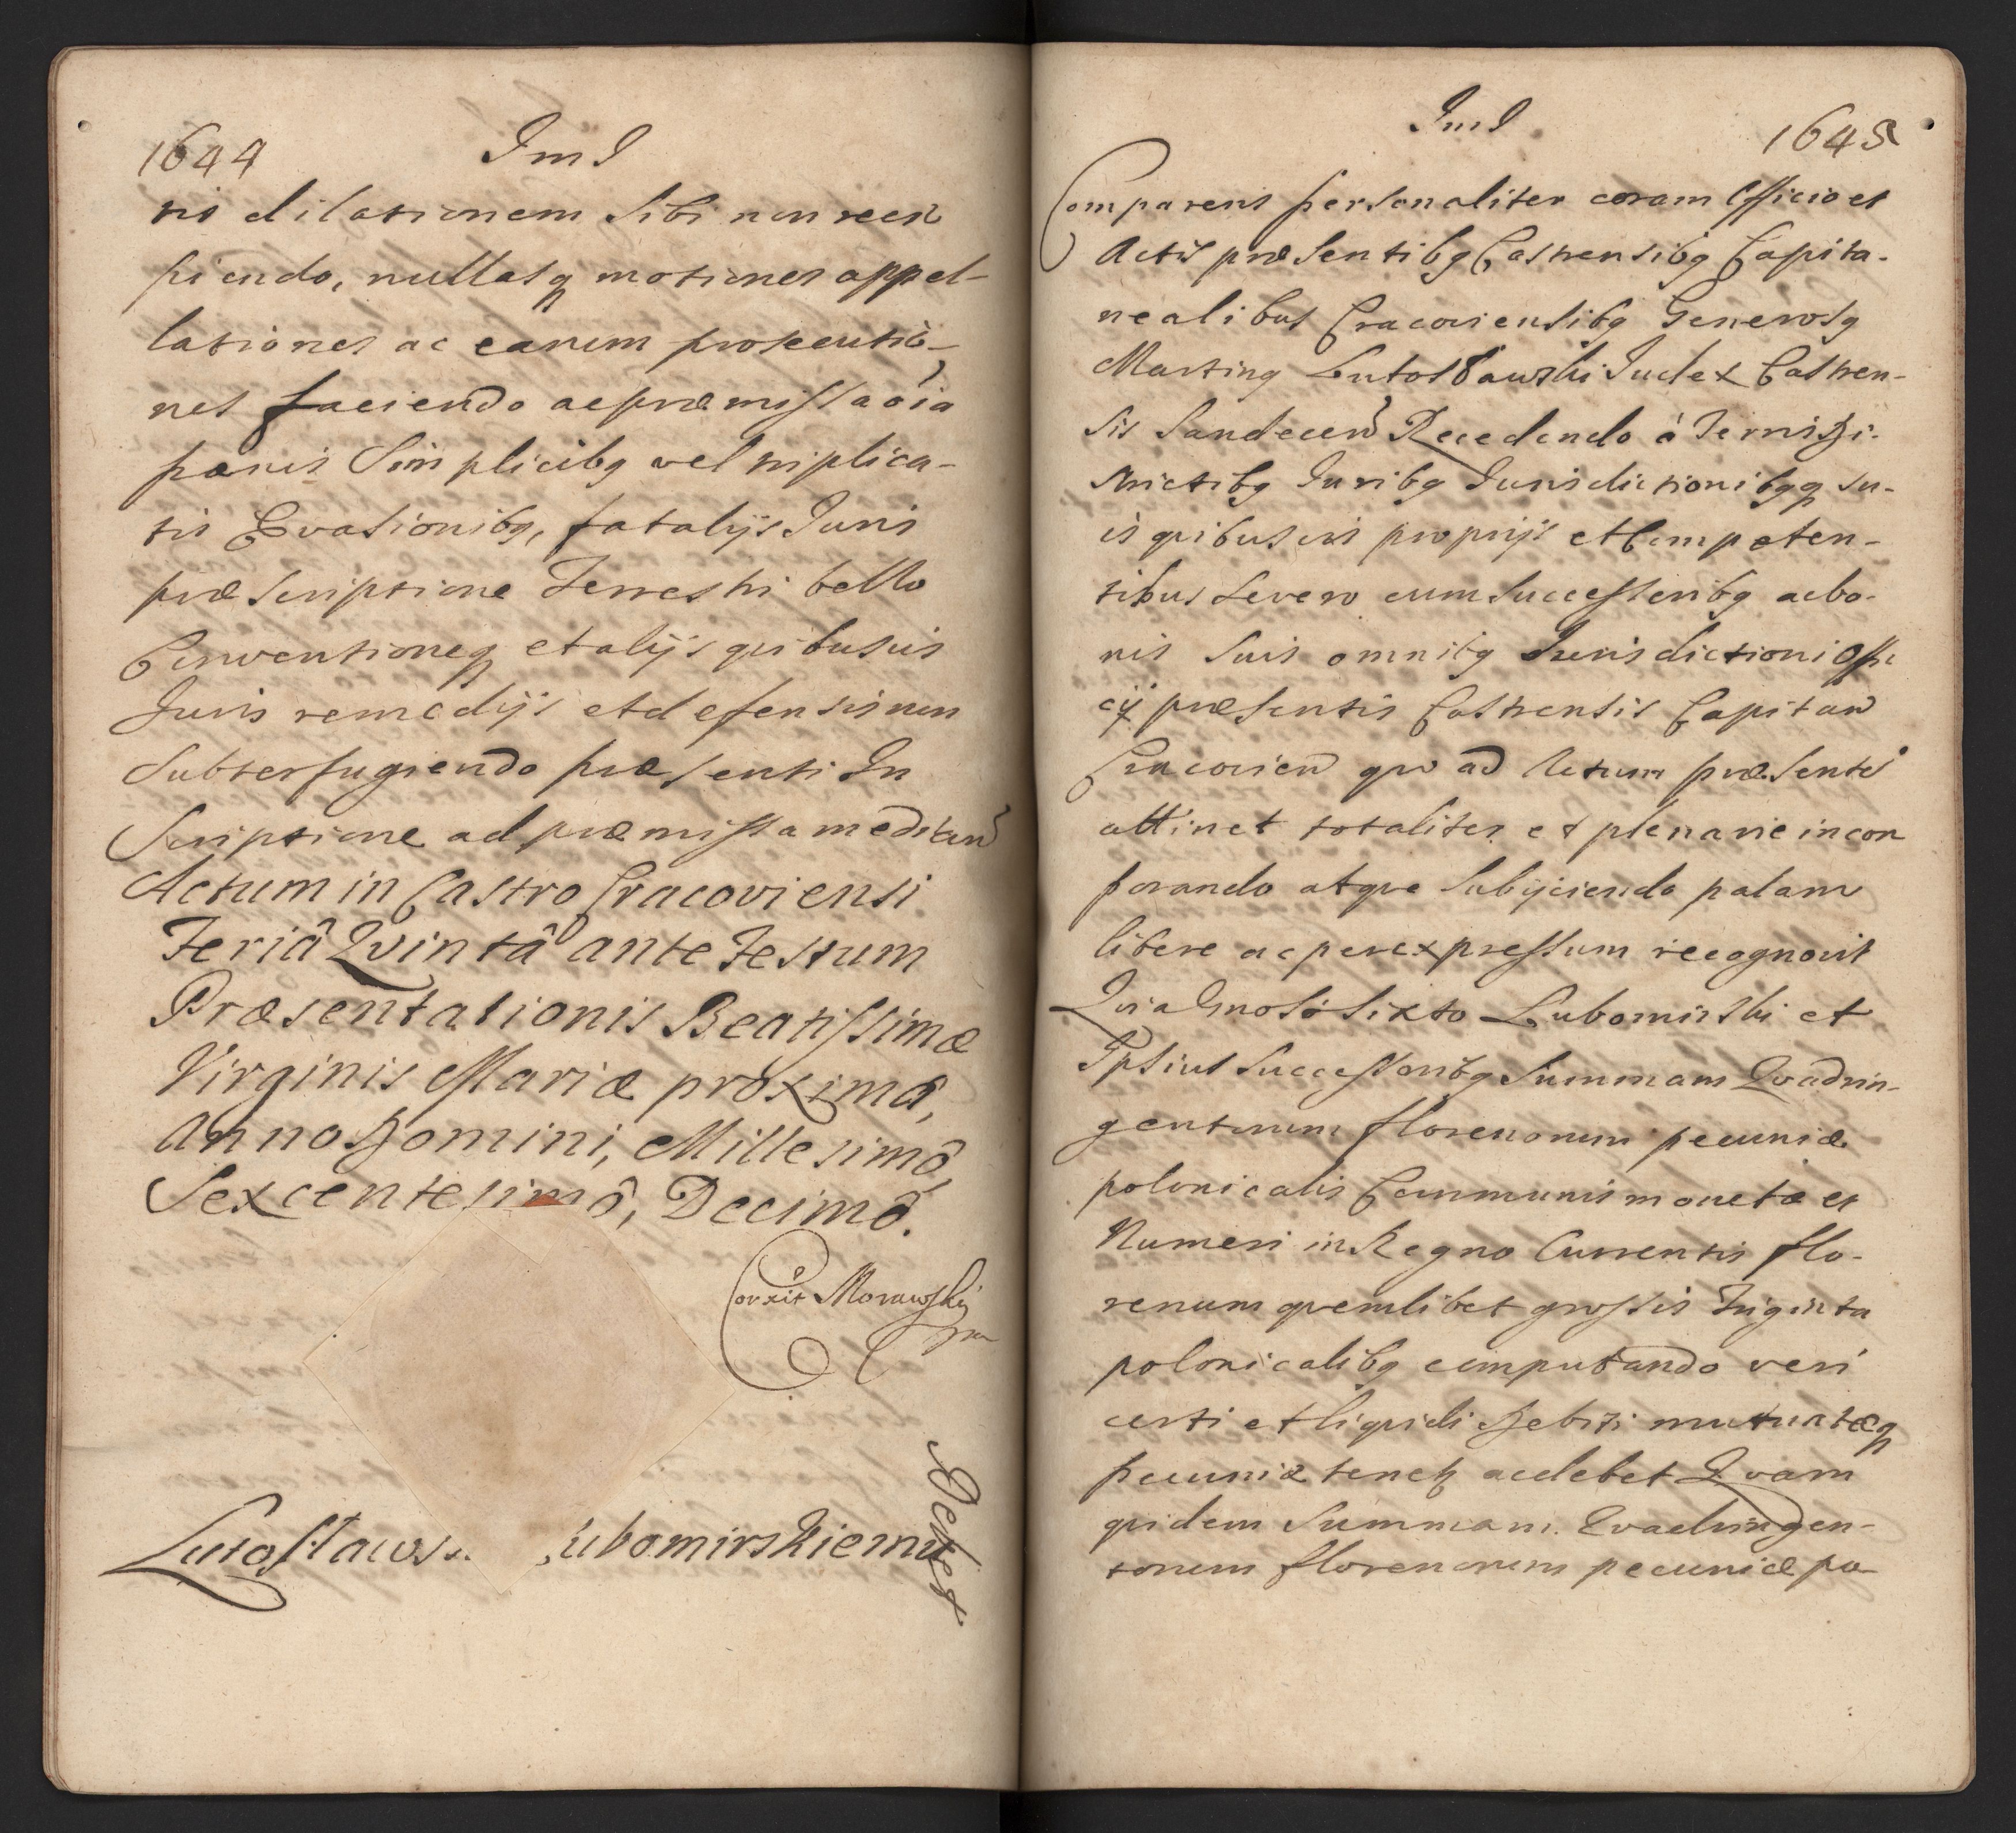 1644 ImI
ris dilationem sibi non reci
piendo, nullasq motiones appel-
lationes ac earum prosecutio-
nes faciendo ac præmissa oĩa
pænis simplicibq vel triplica-
tis Evasionibq, fatalijs Iuris
præscriptione Terrestri bello
Conventioneq et alijs quibusvis
Iuris remedijs et defensis non
subterfugiendo præsenti In
scriptione ad præmissa median̄
Actum in Castro Cracoviensi
Feriâ Qvintâ ante Festum
Præsentationis Beatissimæ
Virginis Mariæ proximâ,
Anno Domini, Millesimô
Sexcentesimô, Decimô.
Corxit Morawskj
mp
Lutosławs.. ubomirskiemu
Debet
ImI 1645
Comparens personaliter coram Officio et
Actis præsentibq Castrensibq Capita-
nealibus Cracoviensibq Generosq
Martinq Lutosławski Iudex Castren-
sis Sandecen̄ Recedendo à Terris Di-
strictibq Iuribq Iurisdictionibqq su-
is quibusvis proprijs et Competen-
tibus seven cum Successoribq ac bo-
nis suis omnibq Iurisdictioni Offi
cij præsentis Castrensis Capitan̄
Cracovien̄ quo ad Actum præsentē
attinet totaliter et plenarie incor
porando atque subijciendo palam
libere ac per expressum recognovit
Qvia Gnoso Sixto Lubomirski et
Ipsius Successoribq Summam Qvadrin-
gentorum florenorum pecuniæ
polonicalis Communis monetæ et
Numeri in Regno Currentis flo-
renum quemlibet grossis Triginta
polonicalibq computando veri
certi et liquidi Debiti mutuatæq
pecuniæ tenetꝫ ac debet Qvam
quidem Summam Qvadringen-
torum florenorum pecuniæ po-